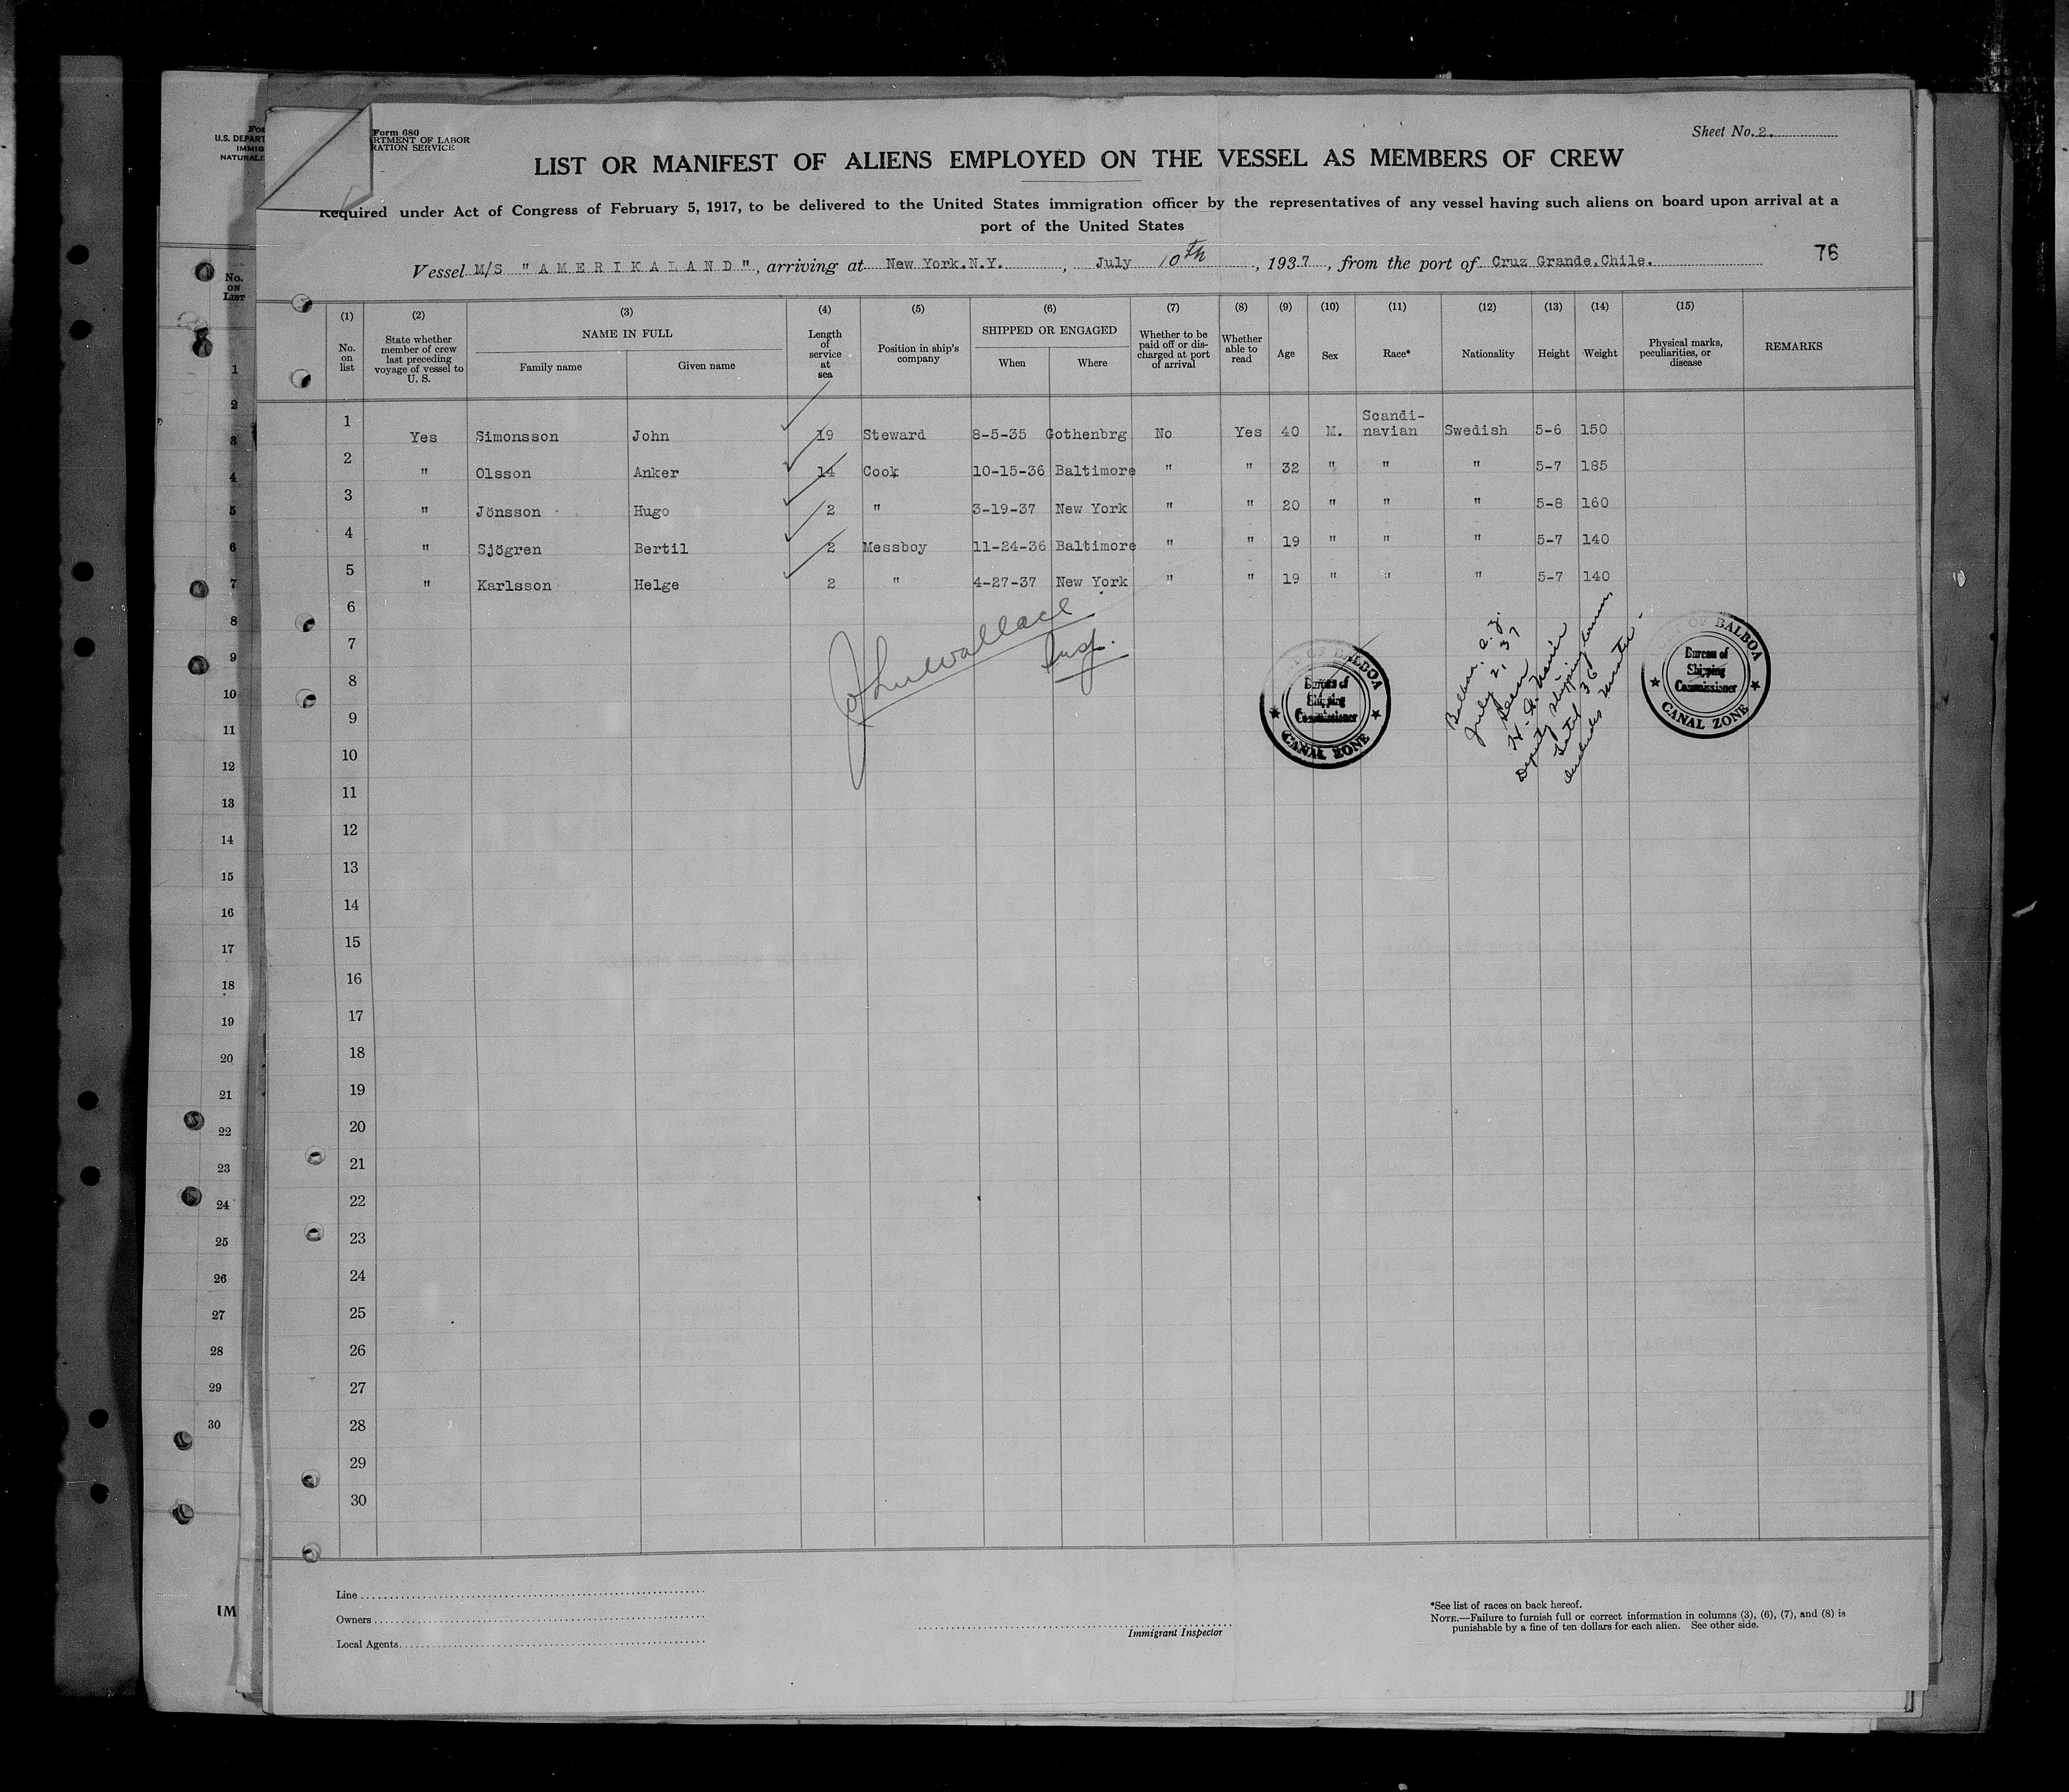 Form 680
RTMENT OF LABOR
RATION SERVICE
Sheet No. 2.
LIST OR MANIFEST OF ALIENS EMPLOYED ON THE VESSEL AS MEMBERS OF CREW
Required under Act of Congress of February 5, 1917, to be delivered to the United States immigration officer by the representatives of any vessel having such aliens on board upon arrival at a
port of the United States
Vessel M/S "AMERIKALAND", arriving at New York.N.Y., July 10th, 1937, from the port of Cruz Grande,Chile.
76
(1) (2) (3) (4) (5) (6) (7) (8) (9) (10) (11) (12) (13) (14) (15)
No. on list
State whether member of crew last preceding voyage of vessel to U. S.
NAME IN FULL
Family name
Given name
Length of service at sea
Position in ship's company
SHIPPED OR ENGAGED
When
Where
Whether to be paid off or discharged at port of arrival
Whether able to read
Age
Sex
Race*
Nationality
Height
Weight
Physical marks, peculiarities, or disease
REMARKS
1 Yes Simonsson John 19 Steward 8-5-35 Gothenbrg No Yes 40 M. Scandi-navian Swedish 5-6 150
2 " Olsson Anker 14 Cook 10-15-36 Baltimore " " 32 " " " 5-7 185
3 " Jönsson Hugo 2 " 3-19-37 New York " " 20 " " " 5-8 160
4 " Sjögren Bertil 2 Messboy 11-24-36 Baltimore " " 19 " " " 5-7 140
5 " Karlsson Helge 2 " 4-27-37 New York " " 19 " " " 5-7 140
6
7
8
9
10
11
12
13
14
15
16
17
18
19
20
21
22
23
24
25
26
27
28
29
30
John Wallace
Insp.
OF BALBOA
Bureau of
Shipping
Commissioner
CANAL ZONE
Balboa, C.Z.
July 2, 37
Seen
Deputy Shipping Comm.
Total 36
Includes Master
OF BALBOA
Bureau of
Shipping
Commissioner
CANAL ZONE
Line
Owners
Local Agents
Immigrant Inspector
*See list of races on back hereof.
NOTE.—Failure to furnish full or correct information in columns (3), (6), (7), and (8) is
punishable by a fine of ten dollars for each alien. See other side.
For
U.S. DEPART
IMMIG
NATURALI
No.
ON
LIST
1
2
3
4
5
6
7
8
9
10
11
12
13
14
15
16
17
18
19
20
21
22
23
24
25
26
27
28
29
30
IM